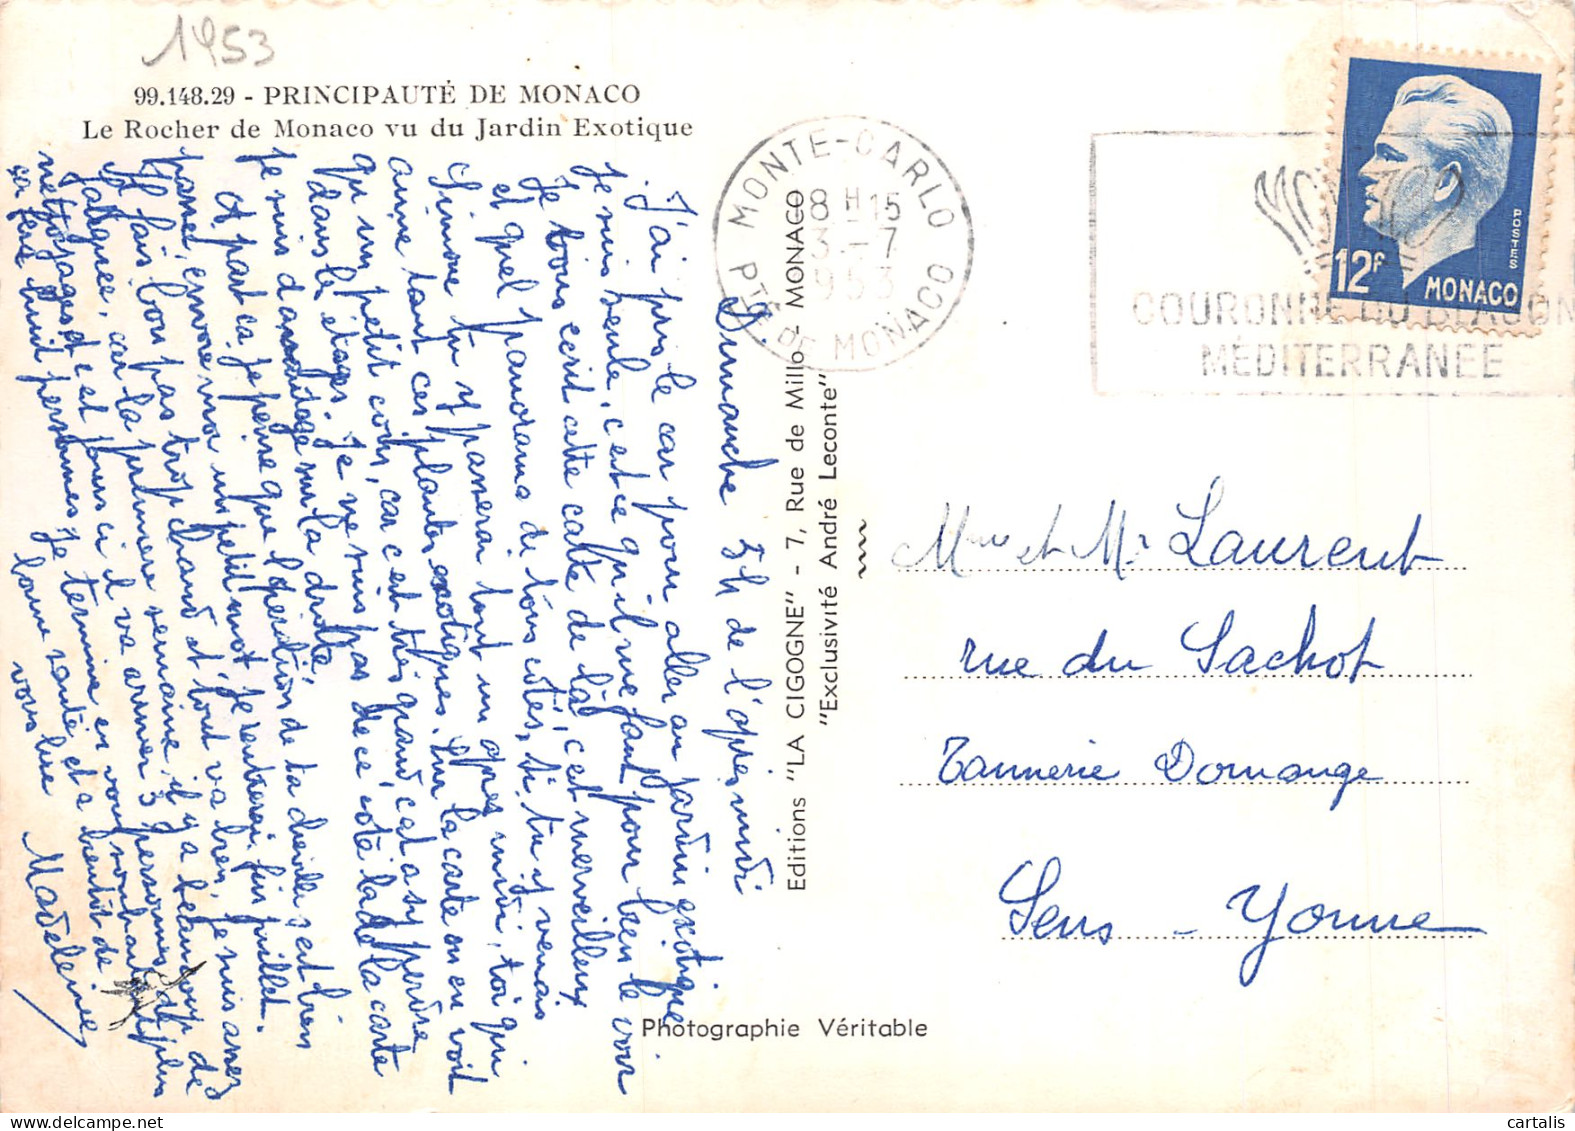 1953
99.148.29 - PRINCIPAUTÉ DE MONACO
Le Rocher de Monaco vu du Jardin Exotique
Dimanche 5h de l'après midi
J'ai pris le car pour aller au jardin exotique
je suis seule, c'est ce qu'il me faut pour bien le voir
Je vous écrit cette carte de là, c'est merveilleux
et quel panorama de tous côtés, si tu y venais
Simone tu y passerai tout un après midi, toi qui
aime tant ces plantes exotiques. Sur la carte on en voit
qu'un petit coin, car c'est très grand c'est a s'y perdre
dans les étages. Je ne suis pas de ce côté la de la carte
je suis d'avantage sur la droite.
A part ca je pense que l'opération de ta cheville s'est bien
passée, envoie moi un petit mot. Je rentrerai fin juillet.
Il fais bon pas trop chaud et tout va bien, je suis assez
fatiguée, car la première semaine il y a beaucoup de
nettoyages et ces jours ci il va arriver 3 personnes de plus
ca fera huit personnes, je termine en vous souhaitant
bonne santé et a bientôt de
vous lire
Madeleine
Editions "LA CIGOGNE" - 7, Rue de Millo - MONACO
"Exclusivité André Leconte"
Photographie Véritable
MONTE-CARLO
8H15
3-7
1953
PTÉ DE MONACO
MONACO
COURONNE DU BLASON
MÉDITERRANÉE
POSTES
12F
MONACO
Mme et Mr Laurent
rue du Sachot
Tannerie Domange
Sens - Yonne
cartalis
delcampe.net